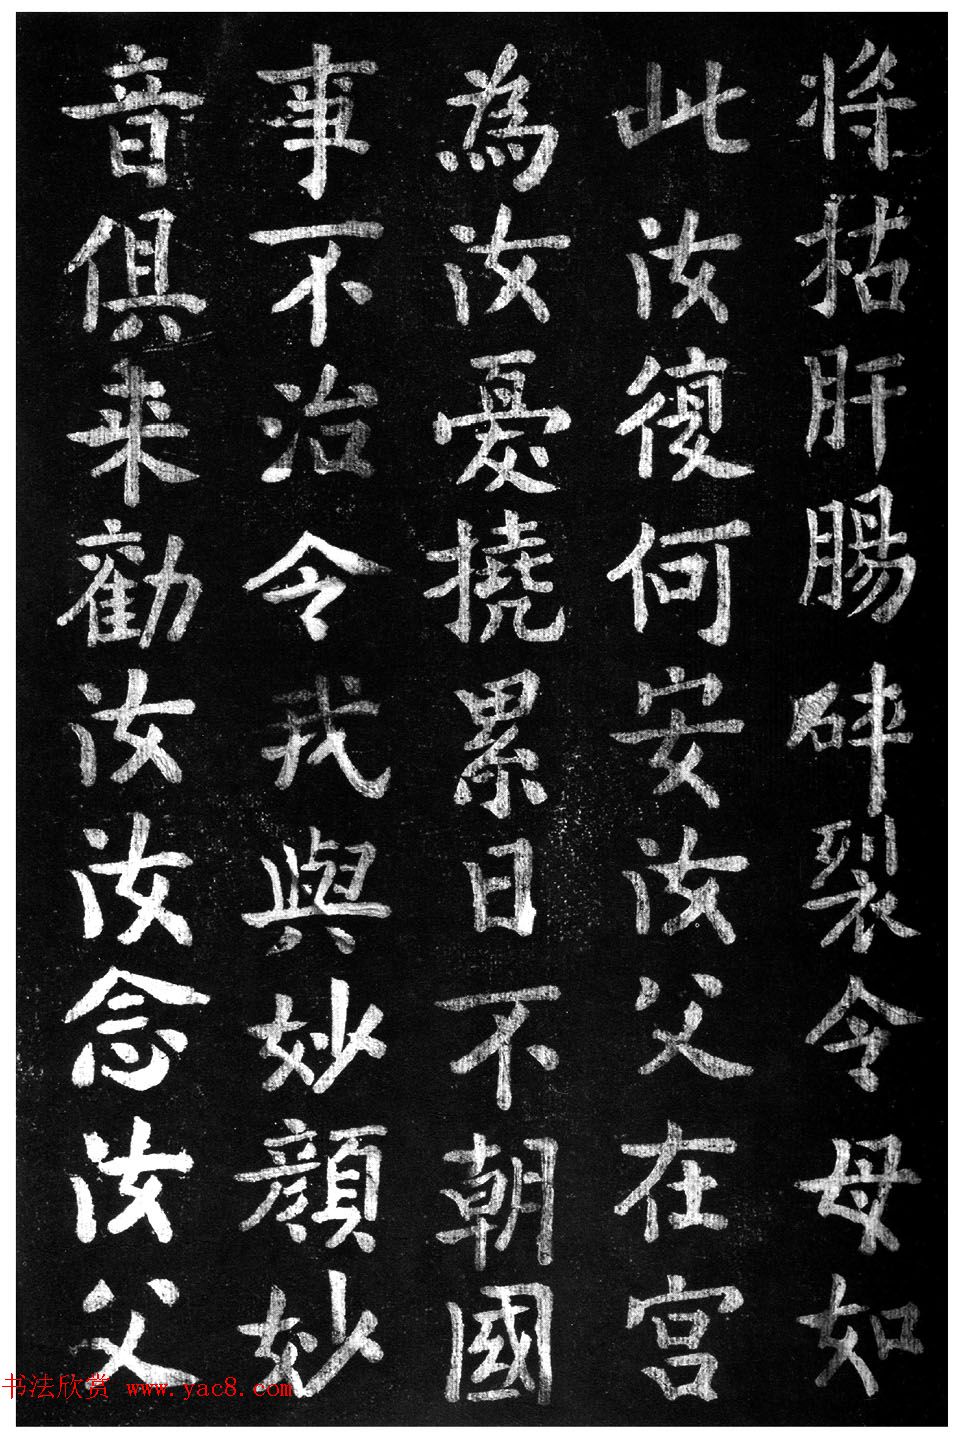 将枯肝腸碎裂令母如
此汝復何安汝父在宫
為汝憂撓累日不朝國
事不治令我與妙顔妙
音俱来勸汝汝念汝父
书法欣赏 www.yac8.com